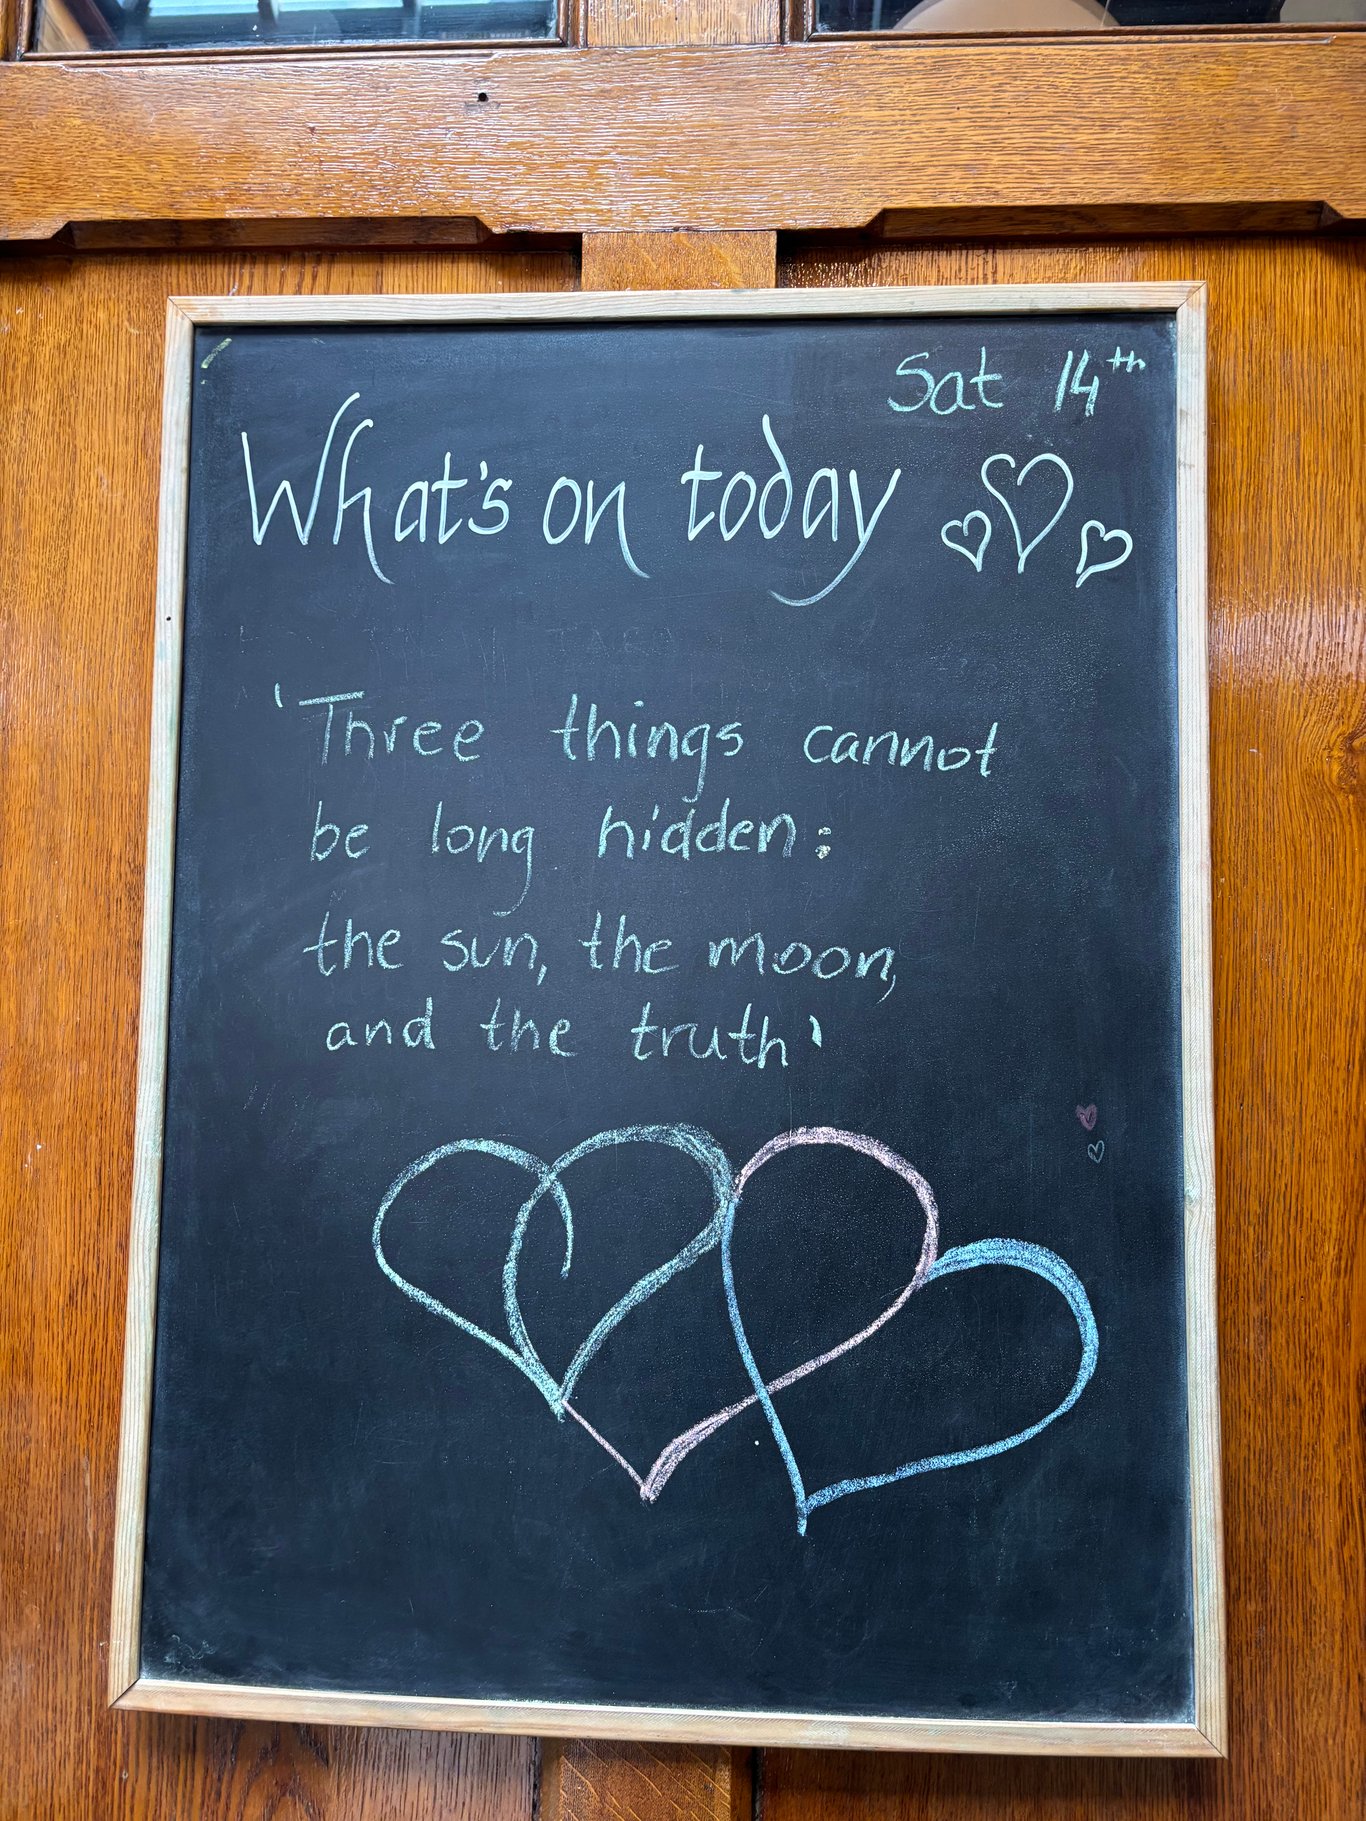 Sat 14th
What's on today
'Three things cannot
be long hidden:
the sun, the moon,
and the truth'